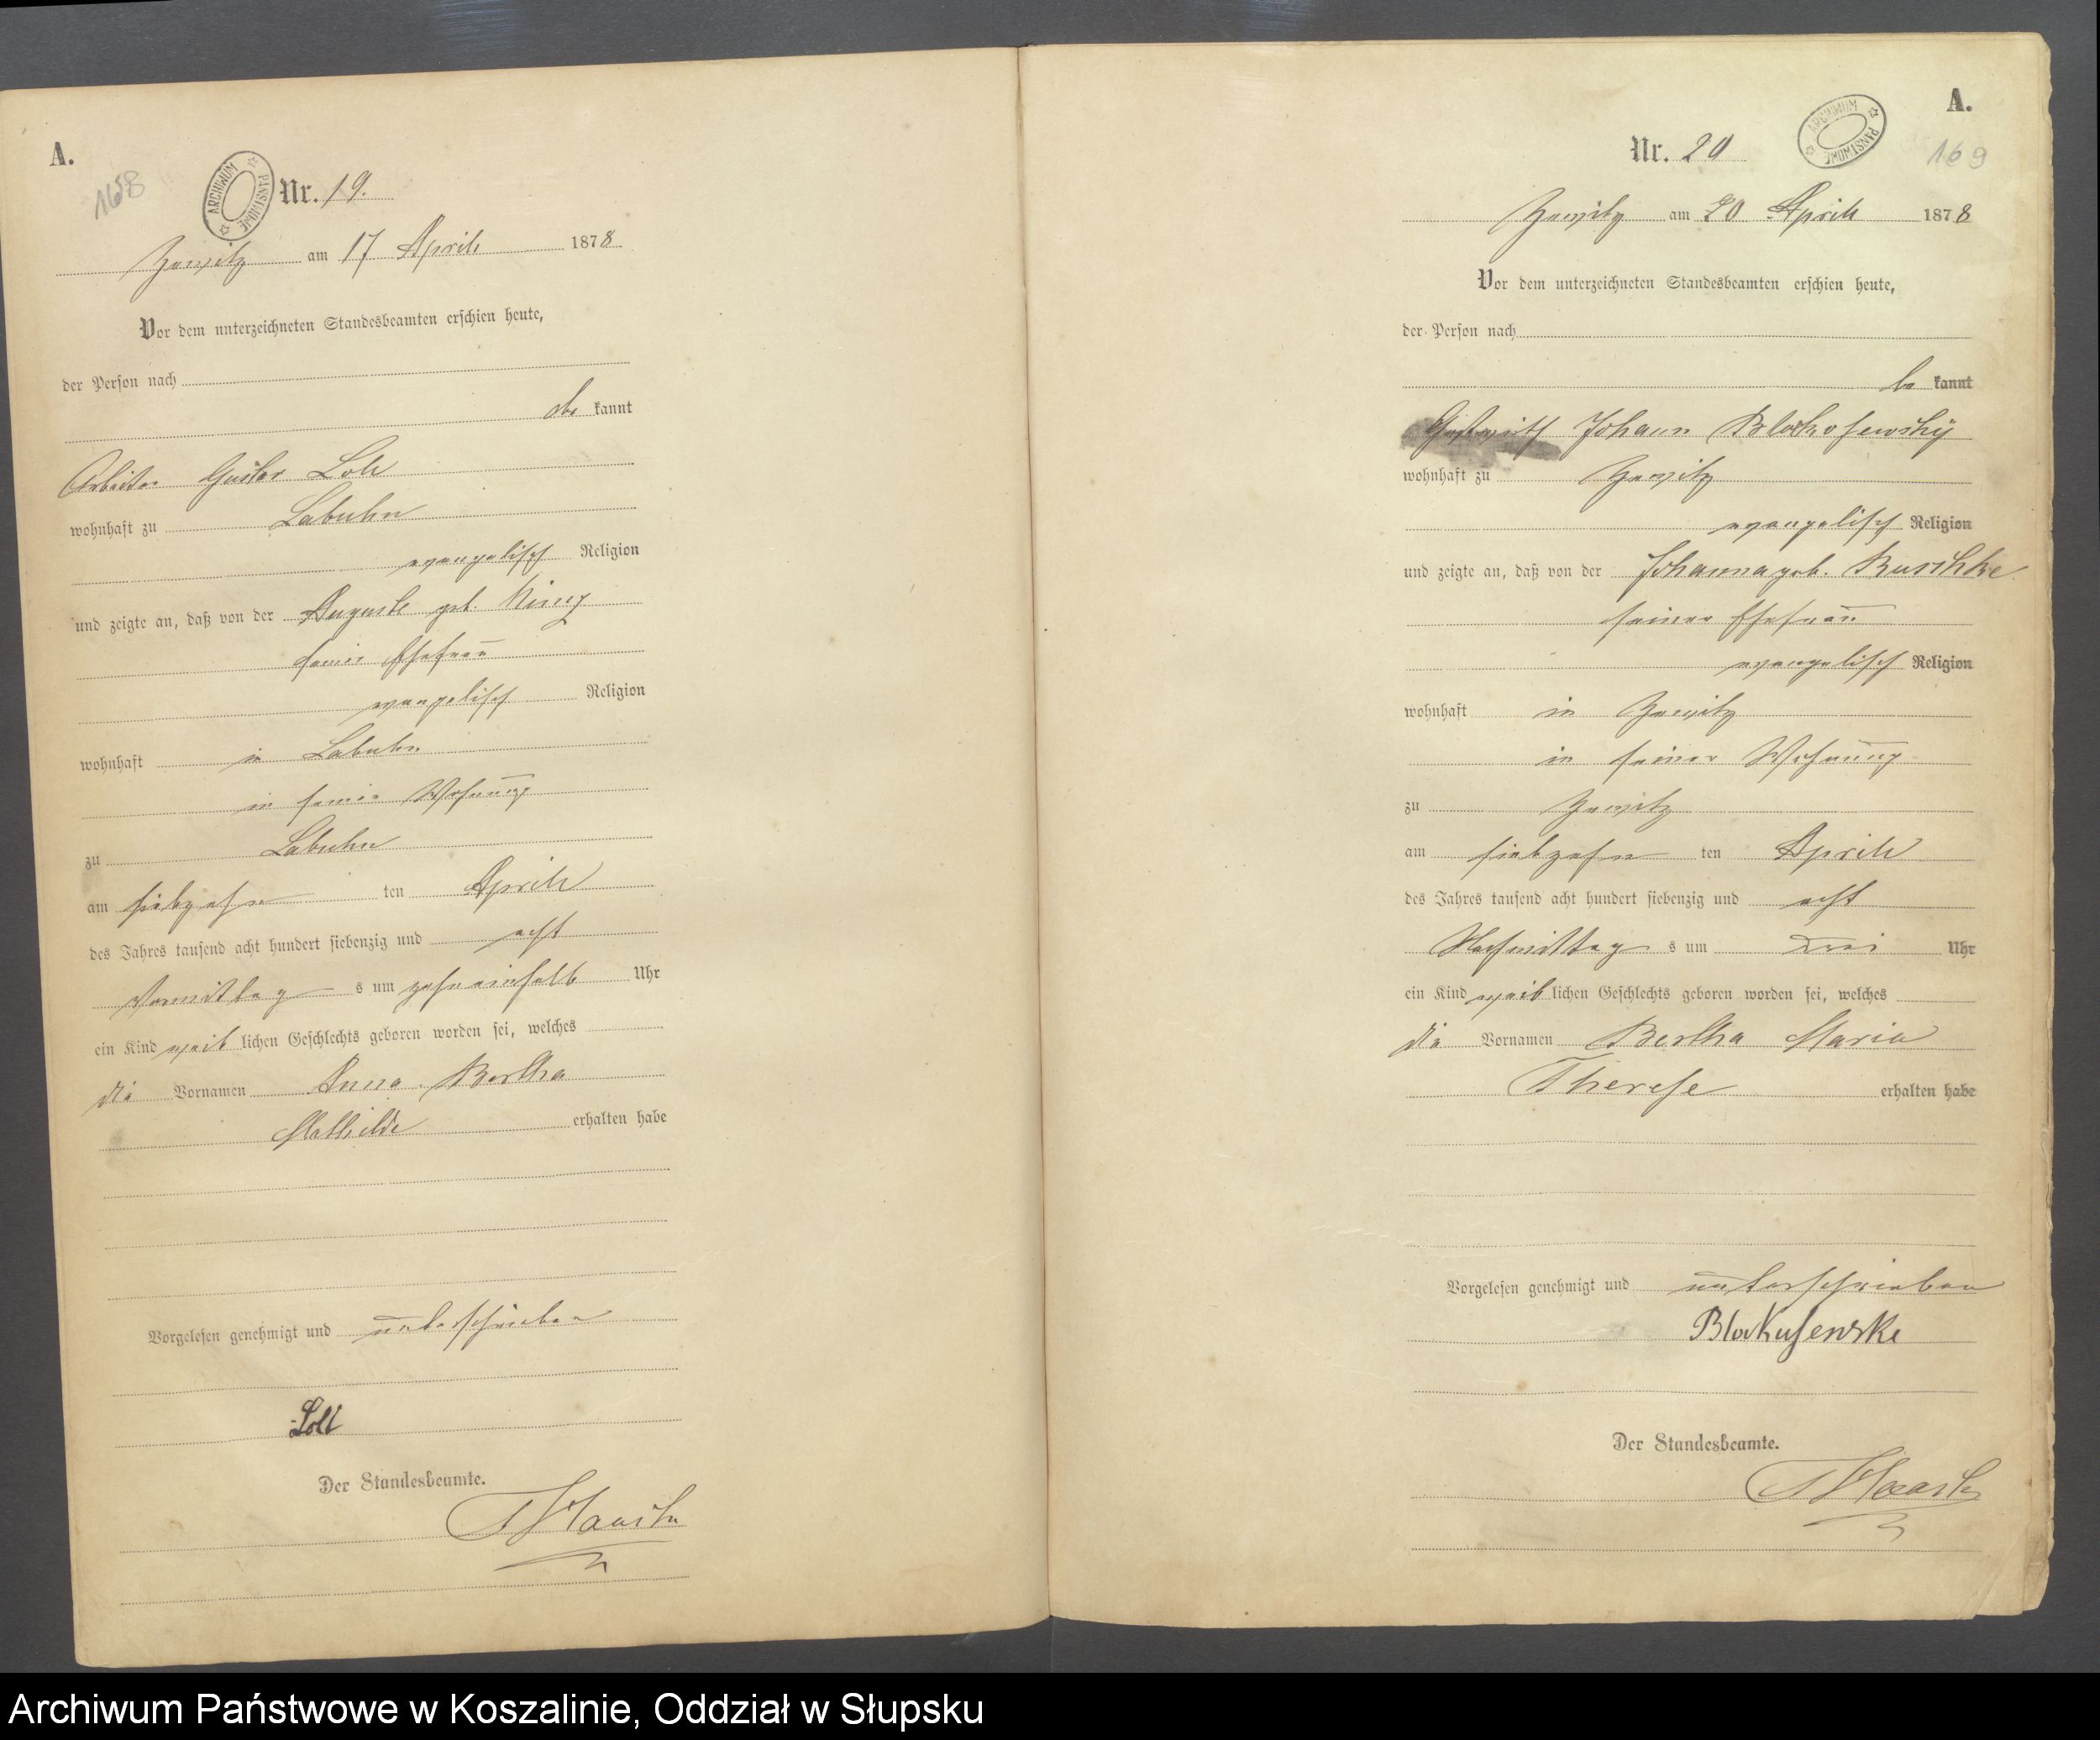 A.
168
ARCHIWUM PAŃSTWOWE
Nr. 19.
Zewitz am 17 April 1878
Vor dem unterzeichneten Standesbeamten erschien heute,
der Person nach
be kannt
Arbeiter Gustav
wohnhaft zu Labuhn
evangelisch Religion
und zeigte an, daß von der Auguste geb.
seiner Ehefrau
evangelisch Religion
wohnhaft in Labuhn
in seiner Wohnung
zu Labuhn
am siebzehn ten April
des Jahres tausend acht hundert siebenzig und acht
Vormittag s um zehneinhalb Uhr
ein Kind weib lichen Geschlechts geboren worden sei, welches
die Vornamen Anna Bertha
Mathilde erhalten habe
Vorgelesen genehmigt und unterschrieben
Der Standesbeamte.
A.
169
ARCHIWUM PAŃSTWOWE
Nr. 20
Zewitz am 20 April 1878
Vor dem unterzeichneten Standesbeamten erschien heute,
der Person nach
be kannt
Gastwirth Johann Blockusewsky
wohnhaft zu Zewitz
evangelisch Religion
und zeigte an, daß von der Johanna geb. Ruschke
seiner Ehefrau
evangelisch Religion
wohnhaft in Zewitz
in seiner Wohnung
zu Zewitz
am siebzehn ten April
des Jahres tausend acht hundert siebenzig und acht
Nachmittag s um drei Uhr
ein Kind weib lichen Geschlechts geboren worden sei, welches
die Vornamen Bertha Maria
Therese erhalten habe
Vorgelesen genehmigt und unterschrieben
Blockusewske
Der Standesbeamte.
Archiwum Państwowe w Koszalinie, Oddział w Słupsku